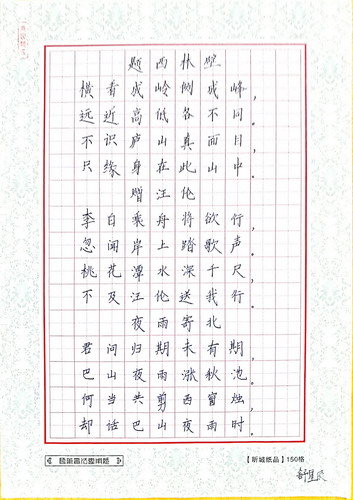 题西林壁
横看成岭侧成峰，
远近高低各不同。
不识庐山真面目，
只缘身在此山中。
赠汪伦
李白乘舟将欲行，
忽闻岸上踏歌声。
桃花潭水深千尺，
不及汪伦送我行。
夜雨寄北
君问归期未有期，
巴山夜雨涨秋池。
何当共剪西窗烛，
却话巴山夜雨时。
【昕城纸品】150格